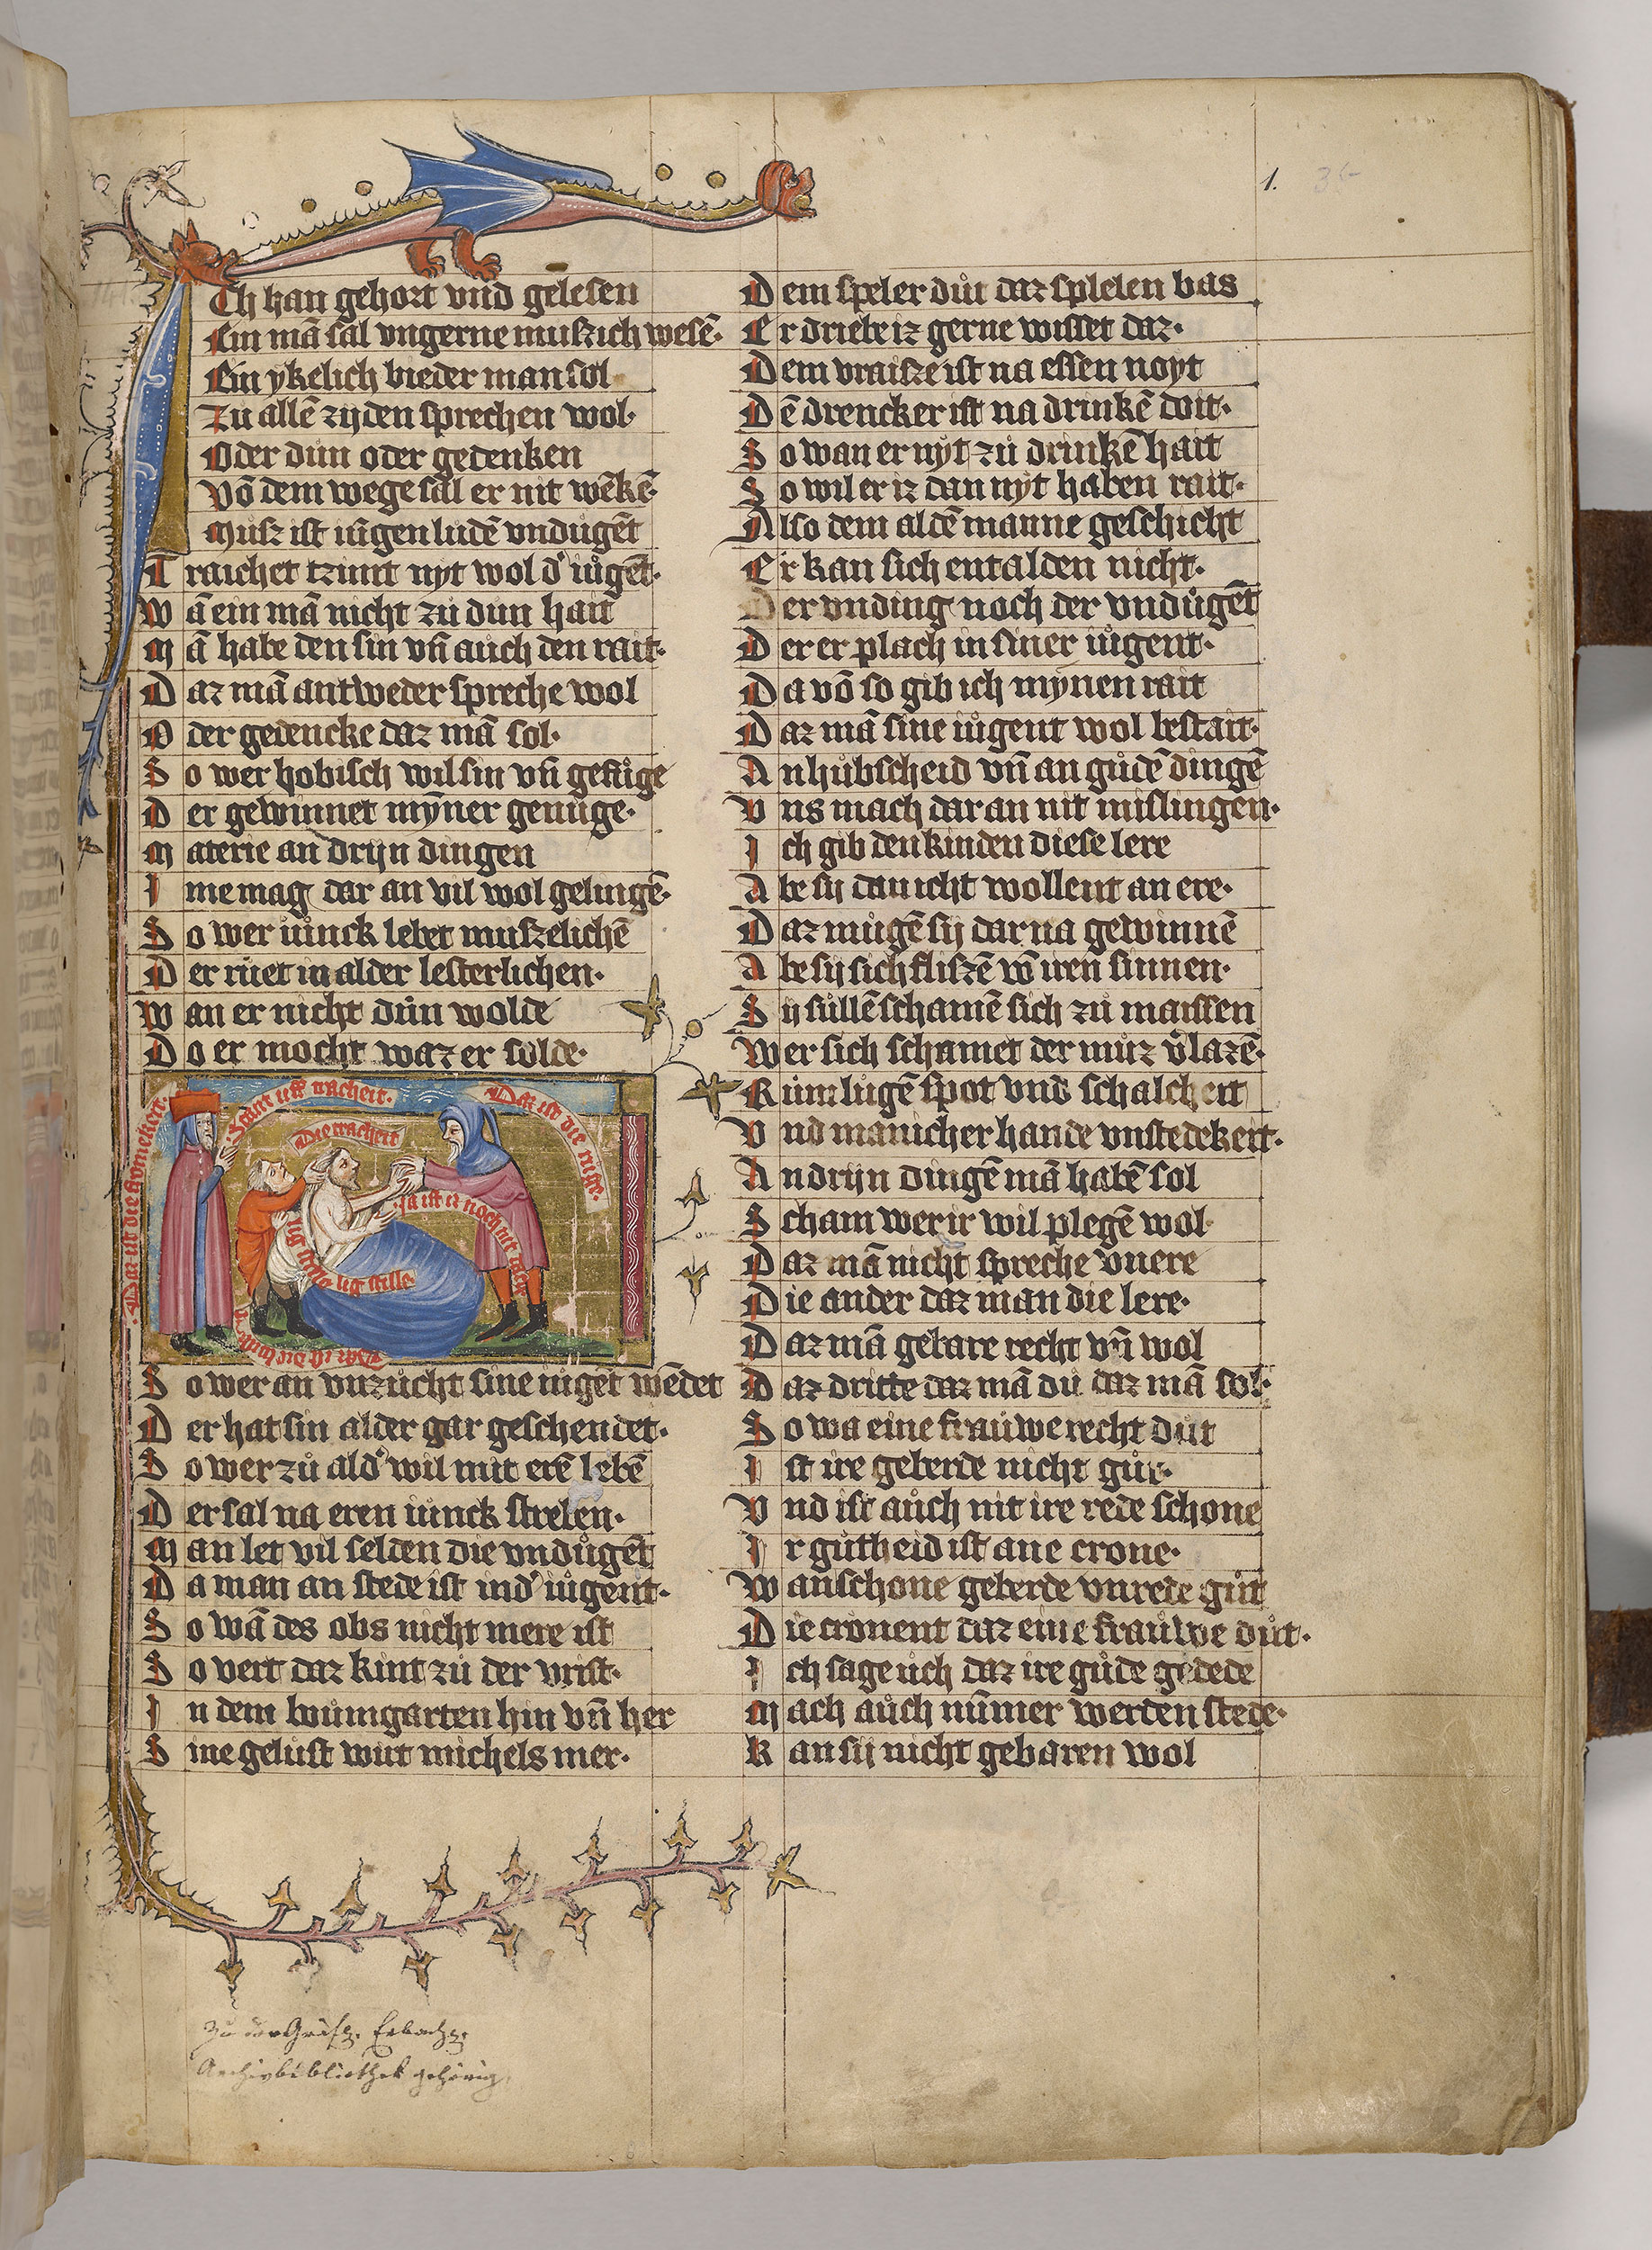 1. 36
Ich han gehort vnd gelesen
Ein mā sal vngerne mußich wesē·
Ein ykelich bieder man sol
Zu allē zijden sprechen wol·
Oder dün oder gedenken
Vō dem wege sal er nit wēkē·
Müsz ist iügen ludē vndügēt
Traicheit tzimt nyt wol d' iůgēt·
Wā ein mā nicht zů dun hait
Mā habe den sin vn̄ aůch den rait·
Daz mā antweder spreche wol
Oder gedencke daz mā sol·
So wer hobisch wil sin vn̄ gefůge
Der gewinnet mȳner genůge·
Materie an drijn dingen
Ime mag dar an vil wol gelingē·
So wer iůnck lebet mußelichē
Der rüet in alder lesterlichen·
Wan er nicht dün wolde
Do er mocht waz er solde·
Daz ist die fromekeit·
Scam uff nacheit·
Die tracheit
Daz ist die niste·
ia ist iz noch nit
lig stille lig stille
Daz ist die
So wer an vnzücht sine iügēt wēdet
Der hat sin alder gar geschendet·
So wer zů ald' wil mit erē lebē
Der sal na eren iůnck streben·
Man let vil selden die vndůgēt
Da man an stede ist in d' iůgent·
So wā des obs nicht mere ist
So vert daz kint zů der vrist·
In dem boůmgarten hin vn̄ her
Sine gelust wirt michels mer·
Dem speler důt daz splelen bas
Er driebe iz gerne wisset daz·
Dem vraisze ist na essen noyt
Dē drencker ist na drinkē doit·
So wan er nyt zů drinkē hait
So wil er iz dan nyt haben rait·
Also dem aldē manne geschicht
Er kan sich entalden nicht·
Der vnding noch der vndůgēt
Der er plach in siner iůgent·
Da vō so gib ich mȳnen rait
Daz mā sine iůgent wol bestait·
An hůbscheid vn̄ an gůdē dingē
Vns mach dar an nit mislingen·
Ich gib den kinden diese lere
Abe sij dan icht wollent an ere·
Daz mügē sij dar na gewinnē
Abe sij sich fliszē vō iren sinnen·
Sij süllē schamē sich zů maissen
Wer sich schamet der můz v'lazē·
Rům lügē spot vnd schalcheit
Vnd manicher hande vnstedekeit·
An drijn dingē mā habē sol
Scham wer ir wil plegē wol·
Daz mā nicht spreche vnere
Die ander daz man die lere·
Daz mā gebare recht vn̄ wol
Daz dritte daz mā dů daz mā sol·
So wa eine fraůwe recht důt
Ist ire geberde nicht gůt·
Vnd ist aůch nit ire rede schone
Ir gůtheid ist ane crone·
Wan schone geberde vn rede gůt
Die cronent daz eine fraůwe důt·
Ich sage üch daz ire gůde gedede
Mach aůch nūmer werden stede·
Kan sij nicht gebaren wol
Zu der Gräfl. Erbach.
Archivbibliothek gehörig.